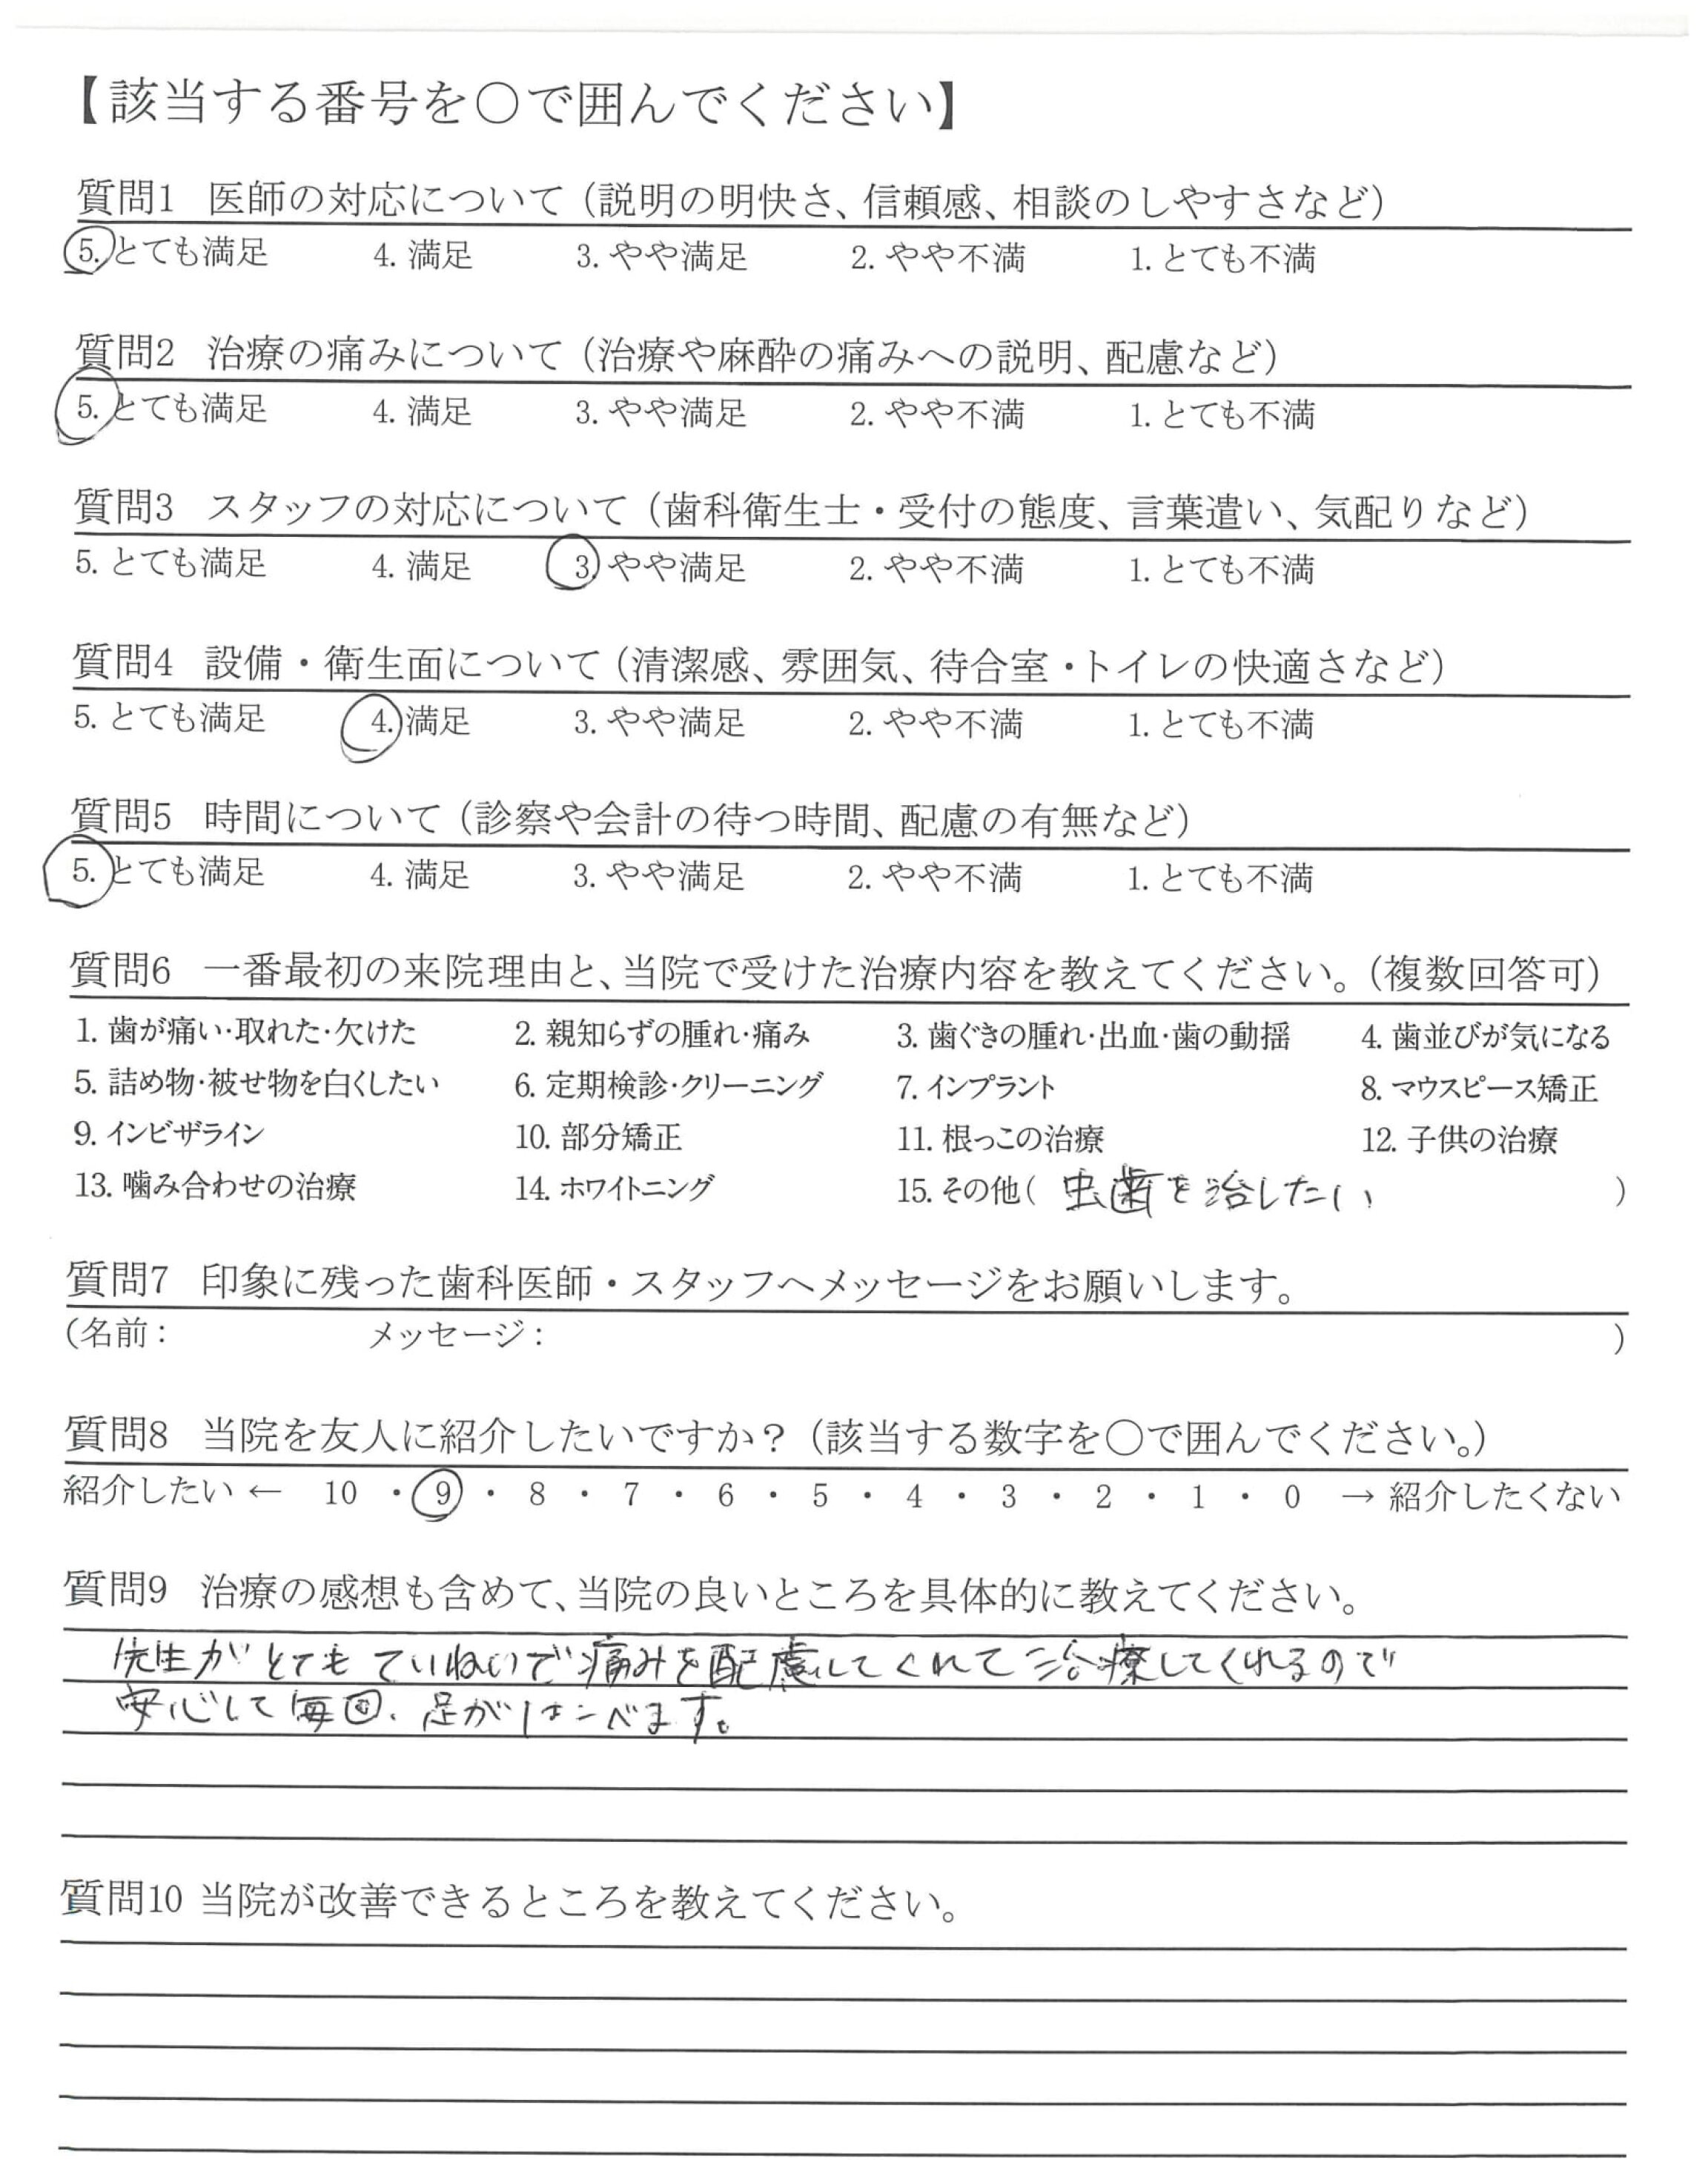 【該当する番号を○で囲んでください】
質問1 医師の対応について（説明の明快さ、信頼感、相談のしやすさなど）
5. とても満足 4. 満足 3. やや満足 2. やや不満 1. とても不満
質問2 治療の痛みについて（治療や麻酔の痛みへの説明、配慮など）
5. とても満足 4. 満足 3. やや満足 2. やや不満 1. とても不満
質問3 スタッフの対応について（歯科衛生士・受付の態度、言葉遣い、気配りなど）
5. とても満足 4. 満足 3. やや満足 2. やや不満 1. とても不満
質問4 設備・衛生面について（清潔感、雰囲気、待合室・トイレの快適さなど）
5. とても満足 4. 満足 3. やや満足 2. やや不満 1. とても不満
質問5 時間について（診察や会計の待つ時間、配慮の有無など）
5. とても満足 4. 満足 3. やや満足 2. やや不満 1. とても不満
質問6 一番最初の来院理由と、当院で受けた治療内容を教えてください。（複数回答可）
1. 歯が痛い・取れた・欠けた 2. 親知らずの腫れ・痛み 3. 歯ぐきの腫れ・出血・歯の動揺 4. 歯並びが気になる
5. 詰め物・被せ物を白くしたい 6. 定期検診・クリーニング 7. インプラント 8. マウスピース矯正
9. インビザライン 10. 部分矯正 11. 根っこの治療 12. 子供の治療
13. 噛み合わせの治療 14. ホワイトニング 15. その他（ 虫歯を治したい ）
質問7 印象に残った歯科医師・スタッフへメッセージをお願いします。
（名前： メッセージ： ）
質問8 当院を友人に紹介したいですか？（該当する数字を○で囲んでください。）
紹介したい ← 10 ・ 9 ・ 8 ・ 7 ・ 6 ・ 5 ・ 4 ・ 3 ・ 2 ・ 1 ・ 0 → 紹介したくない
質問9 治療の感想も含めて、当院の良いところを具体的に教えてください。
先生がとてもていねいで痛みを配慮してくれて治療してくれるので
安心して毎回、足がはこべます。
質問10 当院が改善できるところを教えてください。